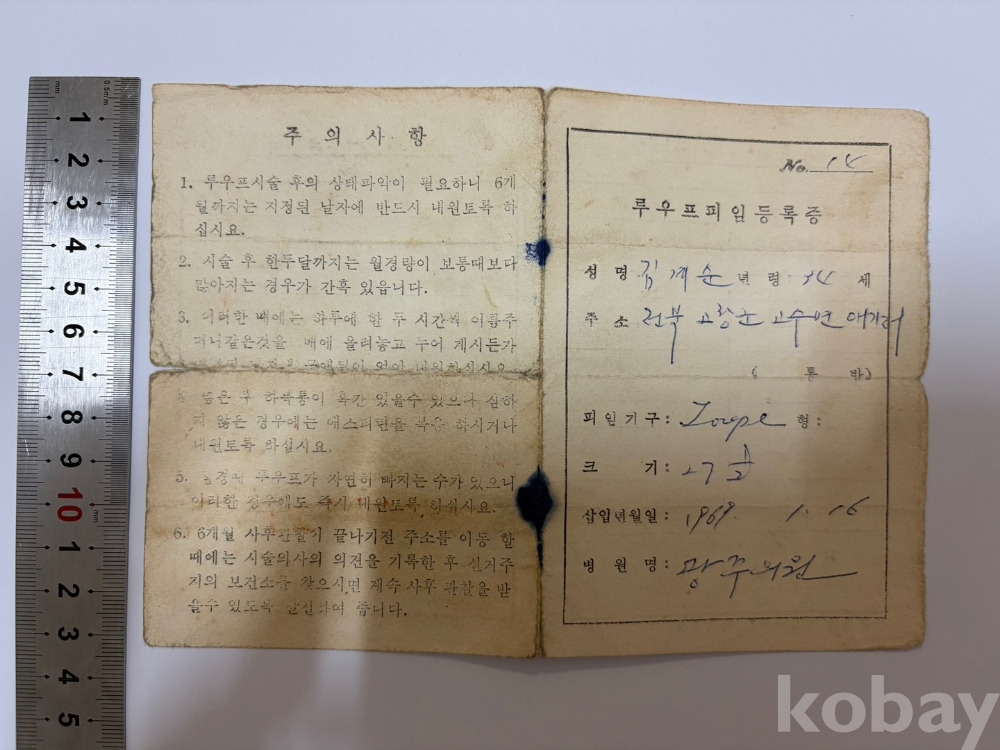 주 의 사 항
1. 루우프시술 후의 상태파악이 필요하니 6개
월까지는 지정된 날자에 반드시 내원토록 하
십시요.
2. 시술 후 한두달까지는 월경량이 보통때보다
많아지는 경우가 간혹 있읍니다.
3. 이러한 때에는 하루에 한 두 시간씩 어름주
머니같은것을 배에 올려놓고 누어 계시든가
내원하십시요
4. 넣은 후 하복통이 혹간 있을수 있으나 심하
지 않은 경우에는 애스피린을 복용 하시거나
내원토록 하십시요.
5. 월경때 루우프가 자연히 빠지는 수가 있으니
이러한 경우에도 즉시 내원토록 하십시요.
6. 6개월 사후관찰이 끝나기전 주소를 이동 할
때에는 시술의사의 의견을 기록한 후 신거주
지의 보건소를 찾으시면 계속 사후 관찰을 받
을수 있도록 알선하여 줍니다.
No. 14
루우프피임등록증
성 명 김계순 년 령 34 세
주 소 전북 고창군 고수면
( 통 반)
피임기구: Loope 형:
크 기: 27
삽입년월일: 1969. 1. 16
병 원 명: 광주의원
mm 0.5m/m
1
2
3
4
5
6
7
8
9
10 mm
1
2
3
4
5
kobay